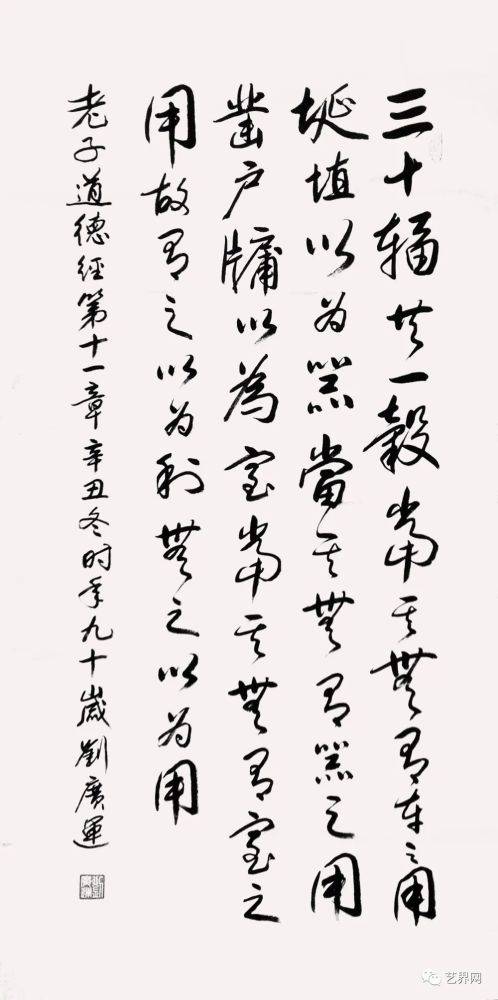 三十辐共一毂當其無有车之用
埏埴以为器當其無有器之用
凿户牖以為室當其無有室之
用故有之以为利無之以为用
老子道德經第十一章辛丑冬时年九十歲劉廣運
艺界网